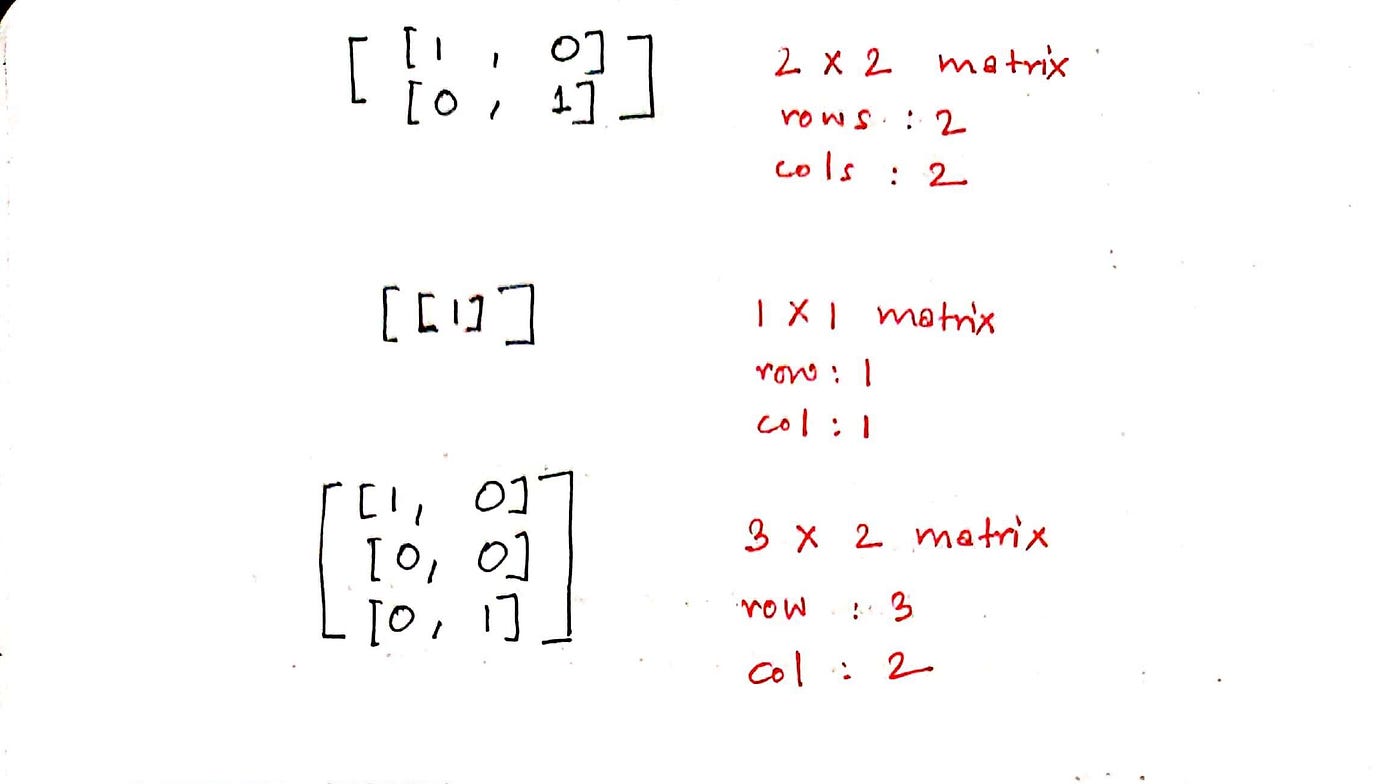 [ [1 , 0] ] 2 x 2 matrix
[0 , 1]
rows : 2
cols : 2
[ [1] ] 1 x 1 matrix
row : 1
col : 1
[ [1, 0]
[0, 0] 3 x 2 matrix
[0, 1] ] row : 3
col : 2